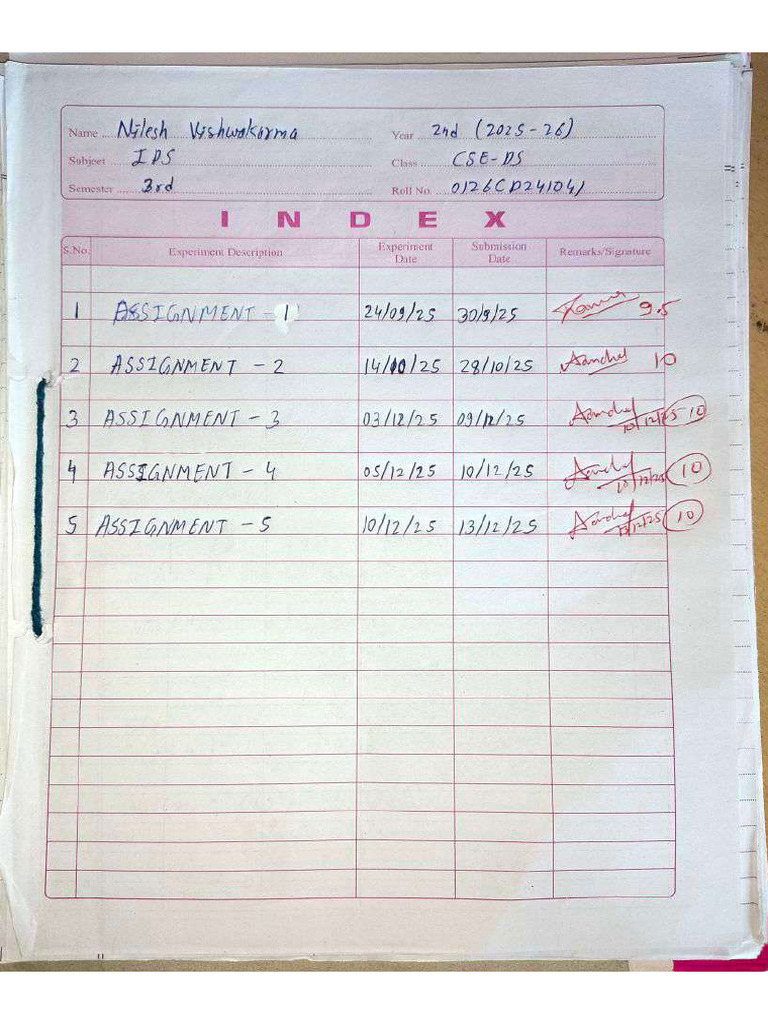 Name Nilesh Vishwakarma Year 2nd (2025-26)
Subject IDS Class CSE-DS
Semester 3rd Roll No. 0126CD241041
INDEX
S.No. Experiment Description Experiment Date Submission Date Remarks/Signature
1 ASSIGNMENT - 1 24/09/25 30/9/25 9.5
2 ASSIGNMENT - 2 14/10/25 28/10/25 Aanchal 10
3 ASSIGNMENT - 3 03/12/25 09/12/25 Aanchal 10/12/25 10
4 ASSIGNMENT - 4 05/12/25 10/12/25 Aanchal 10/12/25 10
5 ASSIGNMENT - 5 10/12/25 13/12/25 Aanchal 13/12/25 10